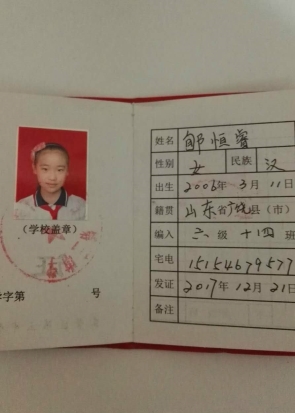 (学校盖章)
字第 号
姓名 邹恒睿
性别 女 民族 汉
出生 2006年3月11日
籍贯 山东省广饶县(市)
编入 六级十四班
宅电 15154679577
发证 2017年12月21日
备注